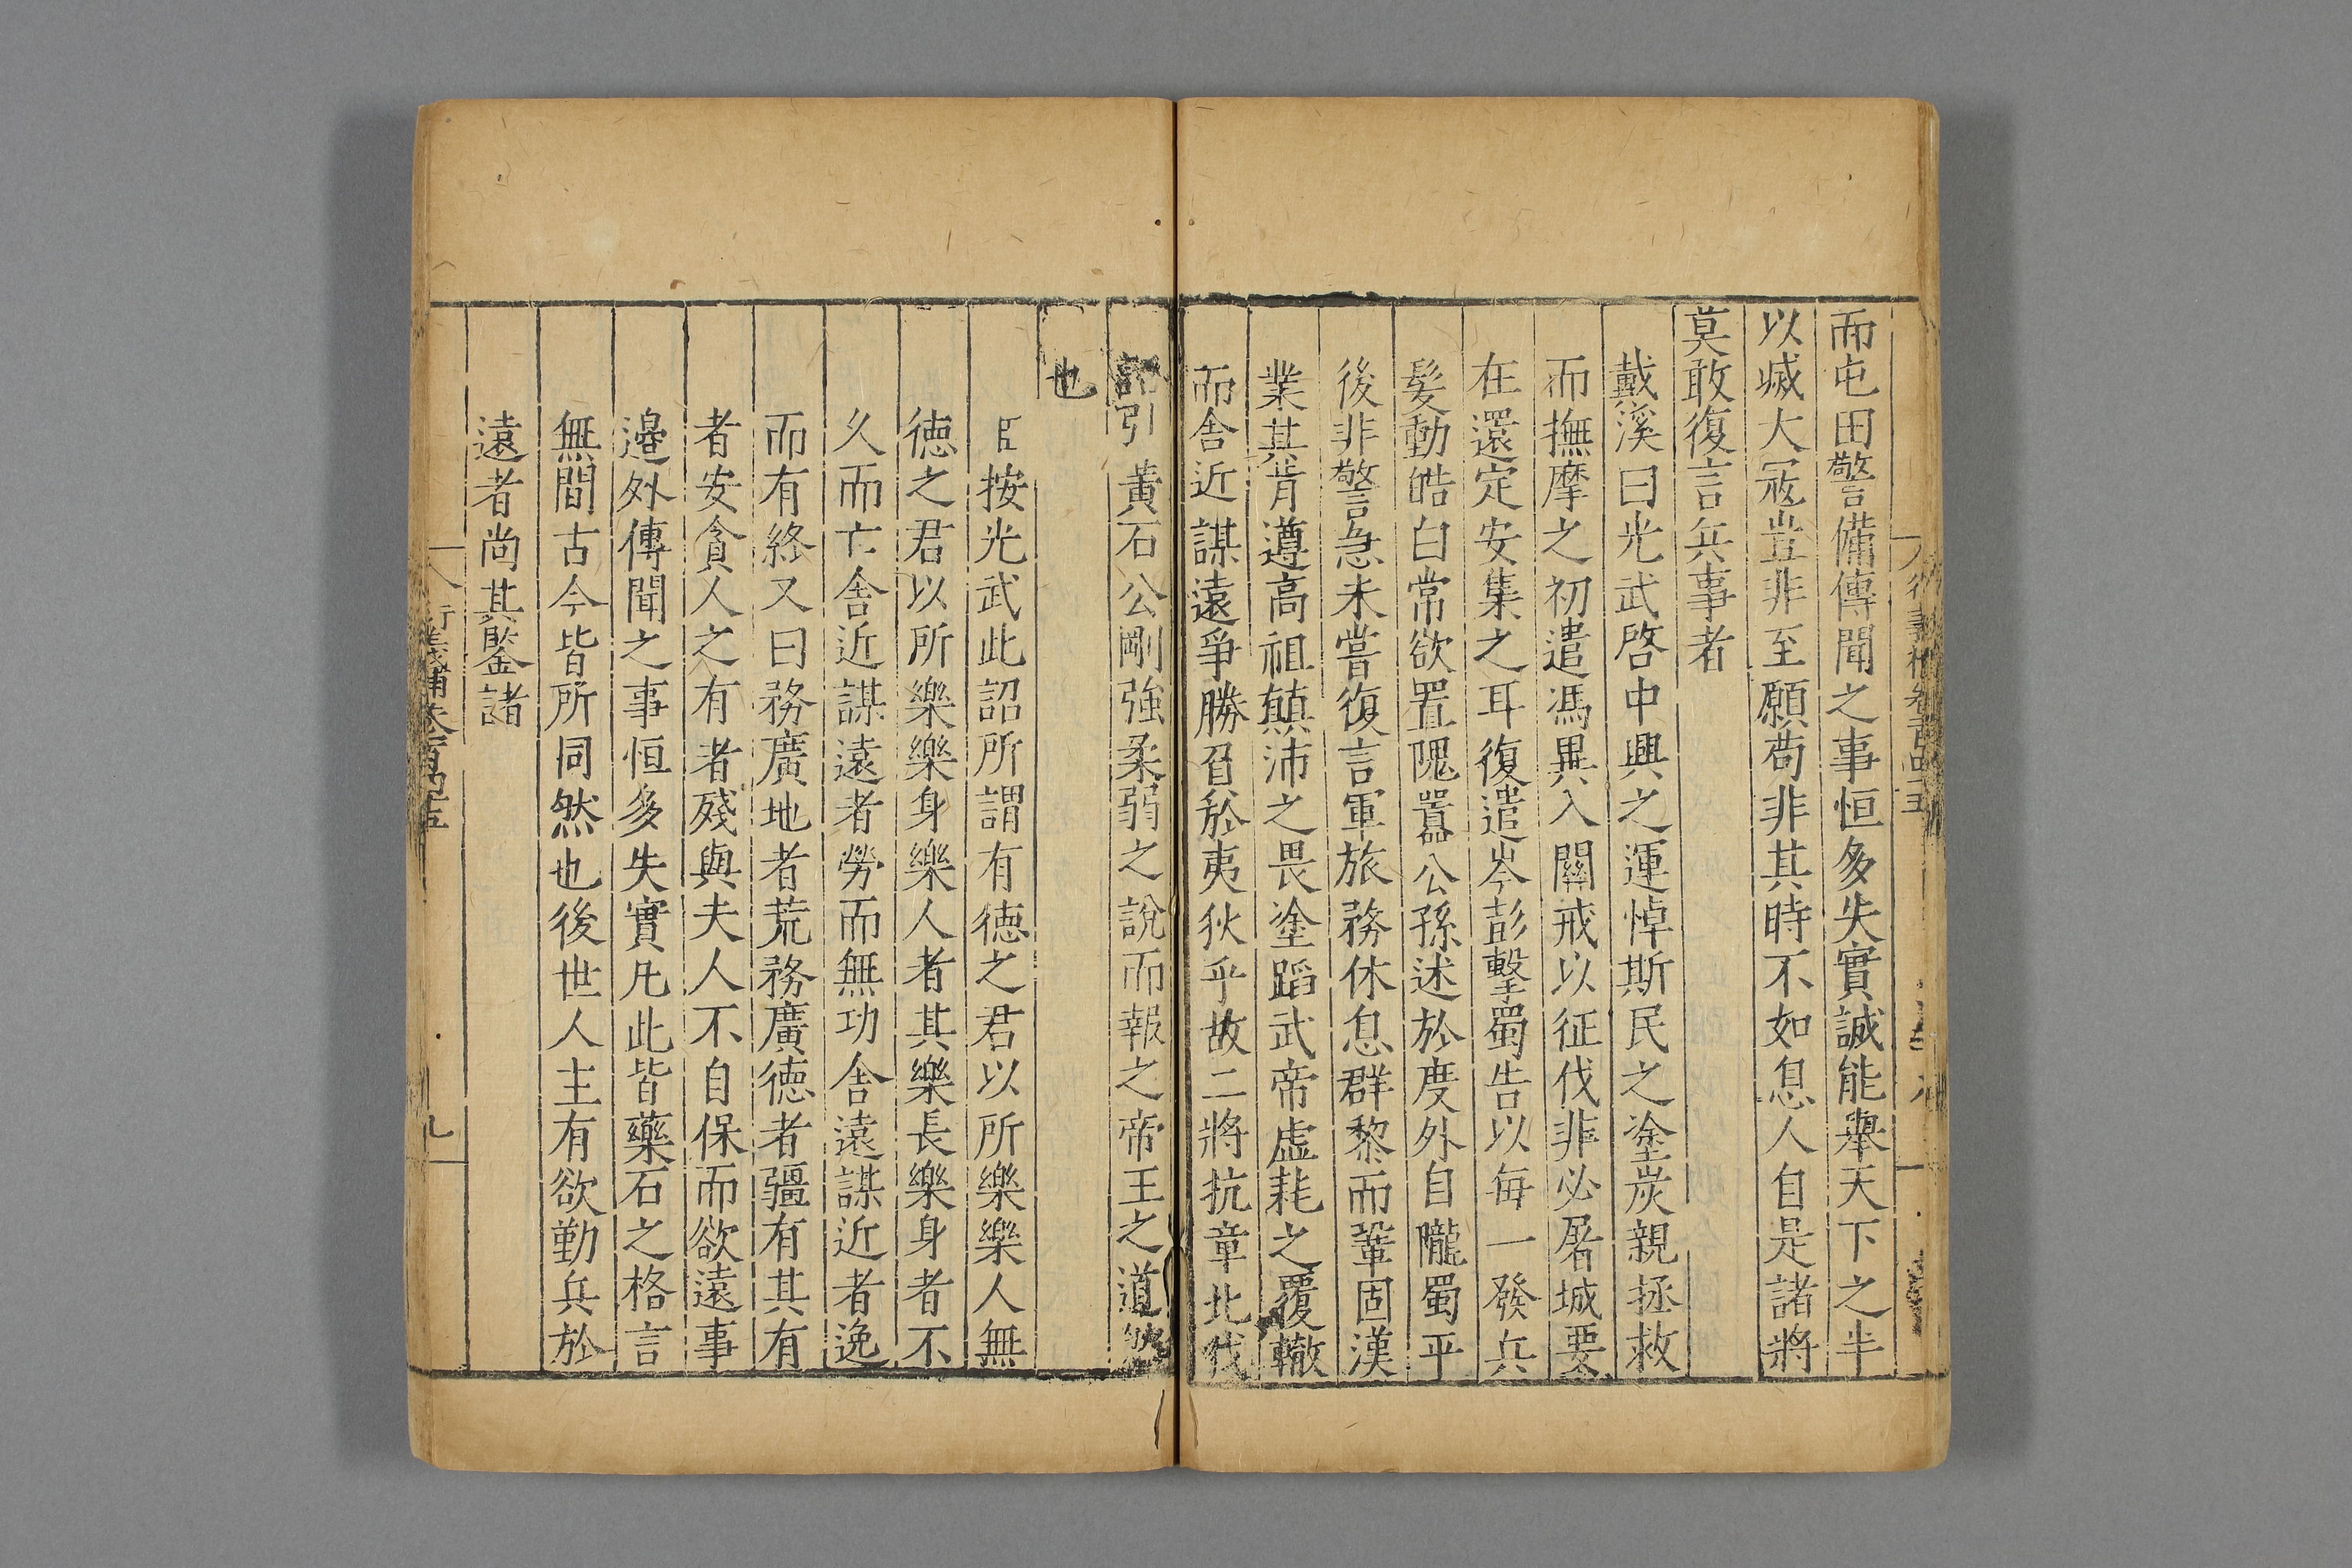 而屯田警備傳聞之事恒多失實誠能舉天下之半
以烕大寇豈非至願苟非其時不如息人自是諸將
莫敢復言兵事者
戴溪曰光武啓中興之運悼斯民之塗炭親拯救
而撫摩之初遣馮異入關戒以征伐非必屠城要
在還定安集之耳復遣岑彭擊蜀告以每一發兵
髮動皓白常欲置隗囂公孫述於度外自隴蜀平
後非警急未嘗復言軍旅務休息群黎而鞏固漢
業其肯遵高祖顛沛之畏塗蹈武帝虛耗之覆轍
而舍近謀遠爭勝負於夷狄乎故二將抗章北伐
詔引黃石公剛強柔弱之說而報之帝王之道
也
臣按光武此詔所謂有德之君以所樂樂人無
德之君以所樂樂身樂人者其樂長樂身者不
久而亡舍近謀遠者勞而無功舍遠謀近者逸
而有終又曰務廣地者荒務廣德者彊有其有
者安貪人之有者殘與夫人不自保而欲遠事
邊外傳聞之事恒多失實凡此皆藥石之格言
無間古今皆所同然也後世人主有欲勤兵於
遠者尚其鑒諸
衍義補卷百四十五
九